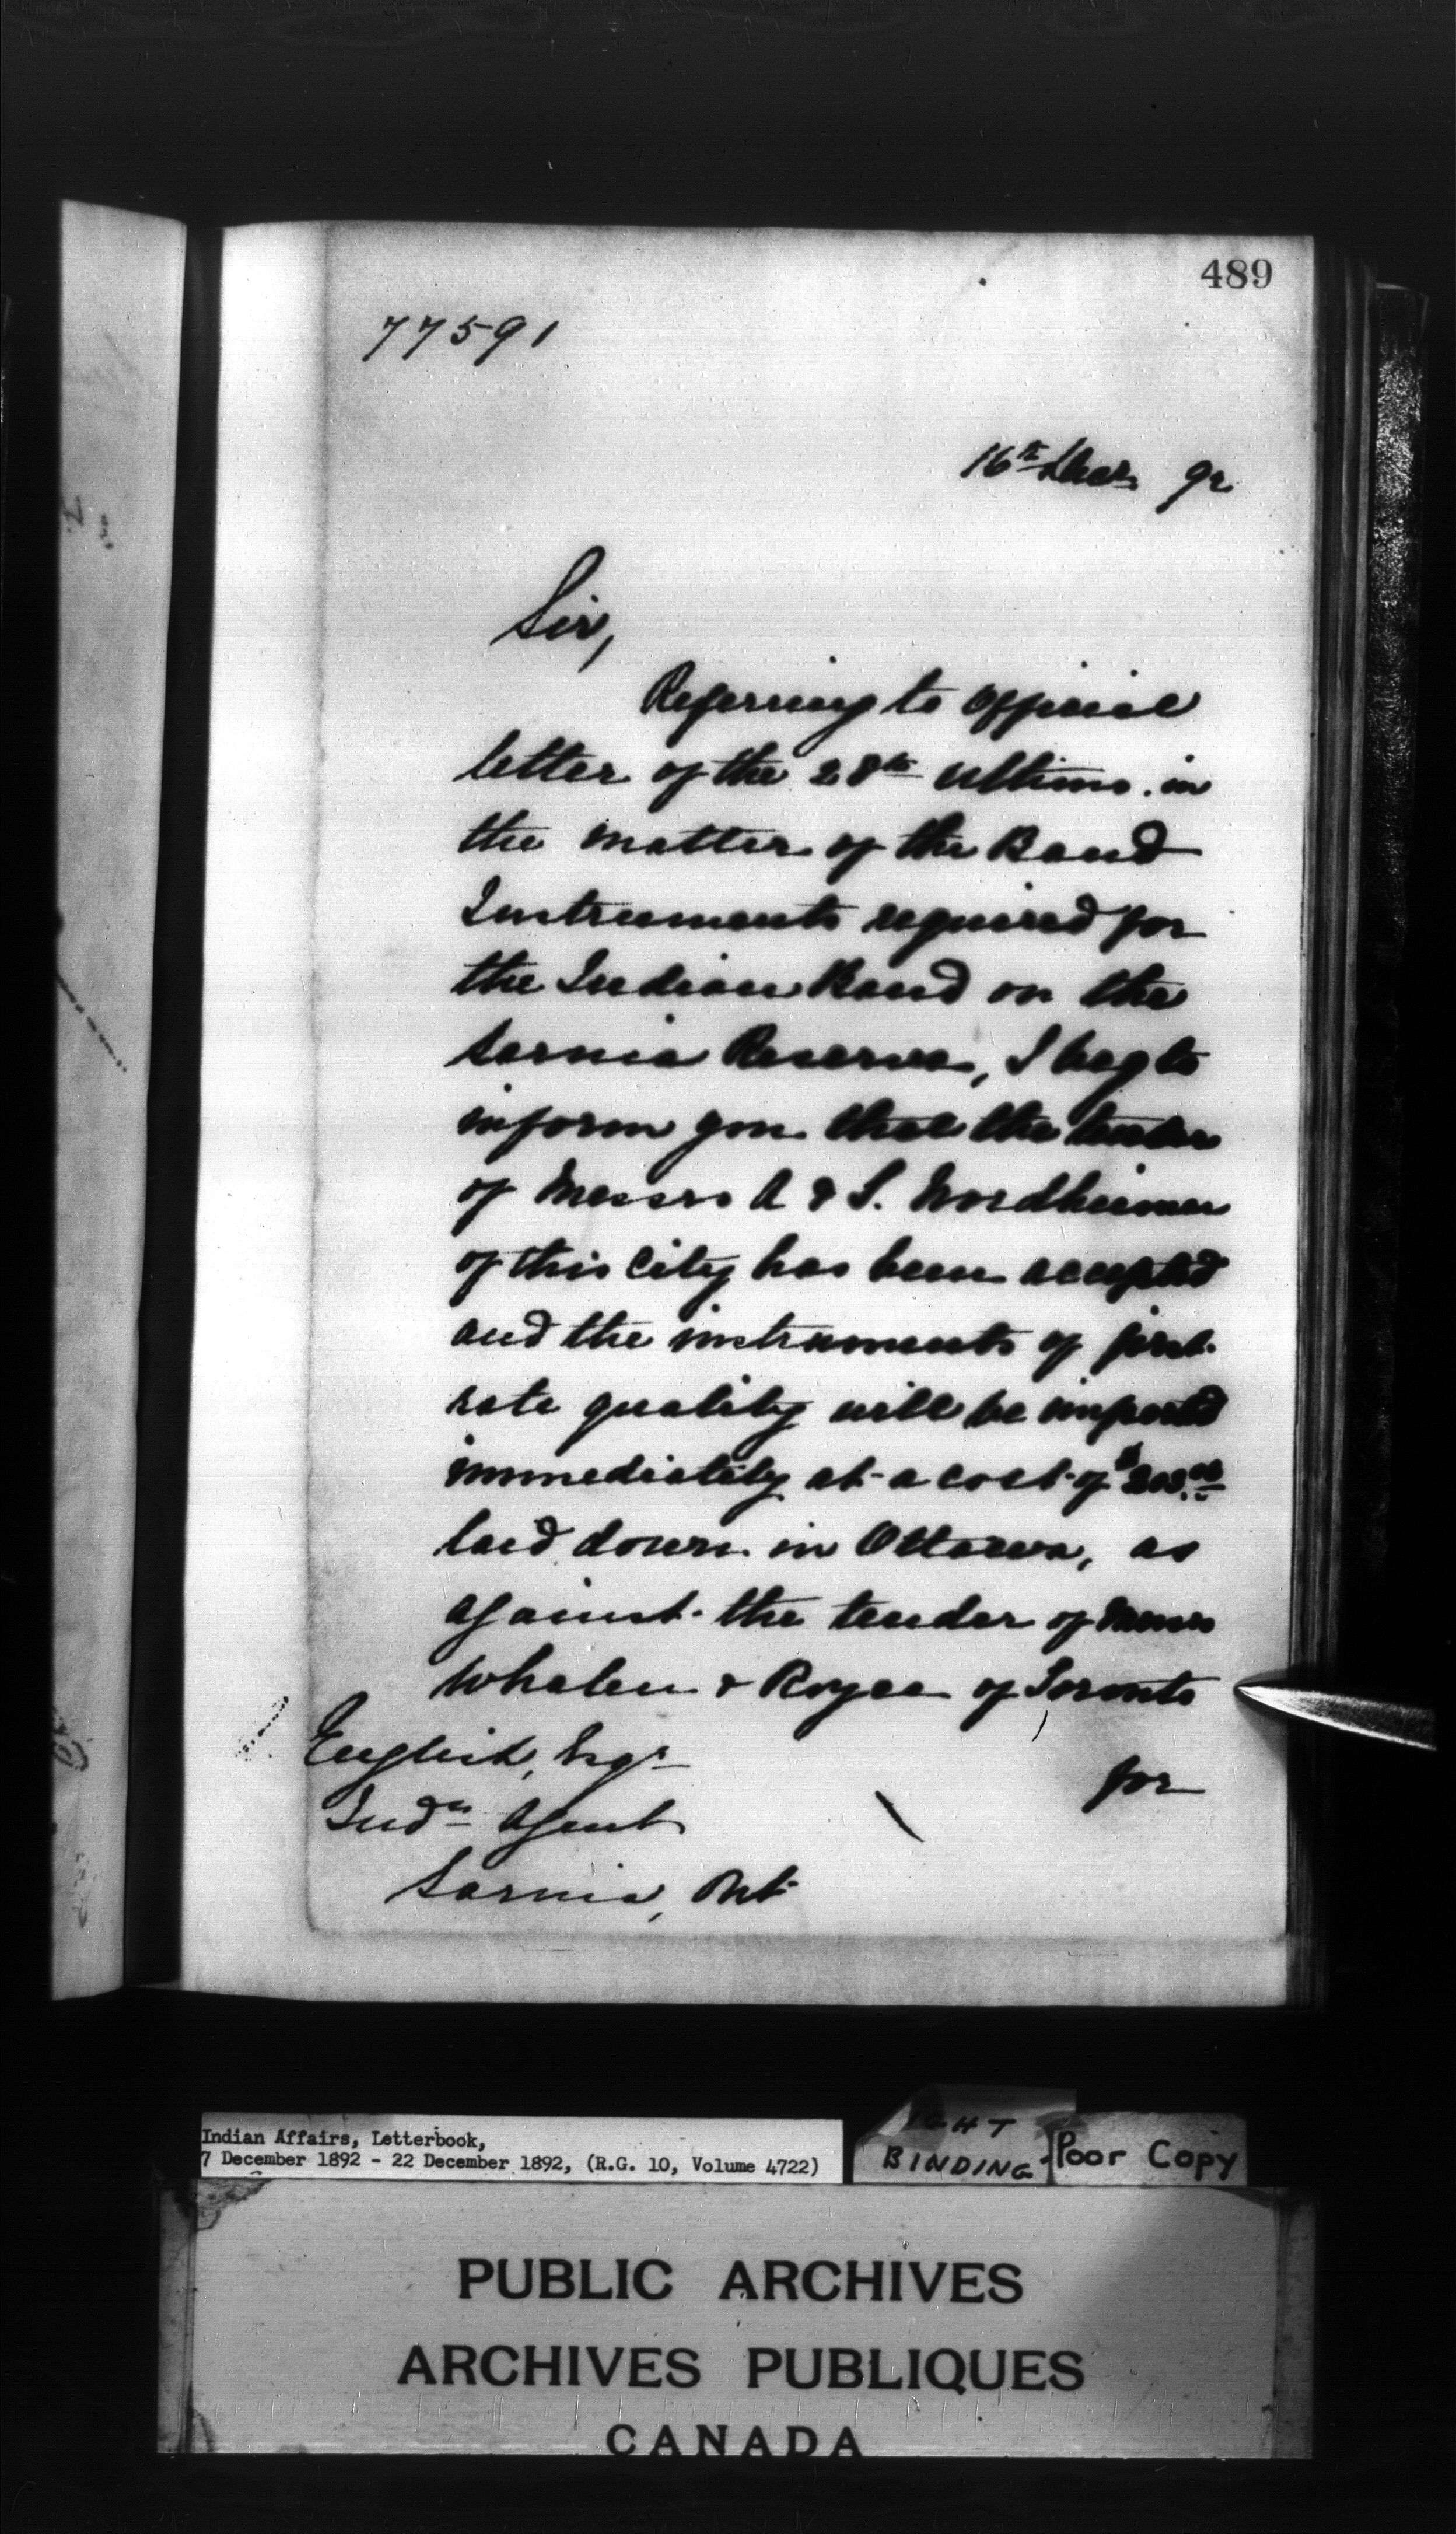 489
77591
16th Decr 92
Sir,
Referring to official
letter of the 28th ultimo. in
the matter of the Band
Instruments required for
the Indian Band on the
Sarnia Reserve, I beg to
inform you that the tender
of Messrs A & S. Nordheimer
of this City has been accepted
and the instruments of first
rate quality will be imported
immediately at a cost of
laid down in Ottawa, as
against the tender of Messrs
Whalen & Royce of Toronto
for
English, Esqr
Indn Agent
Sarnia, Ont
Indian Affairs, Letterbook,
7 December 1892 - 22 December 1892, (R.G. 10, Volume 4722)
BINDING
Poor Copy
PUBLIC ARCHIVES
ARCHIVES PUBLIQUES
CANADA